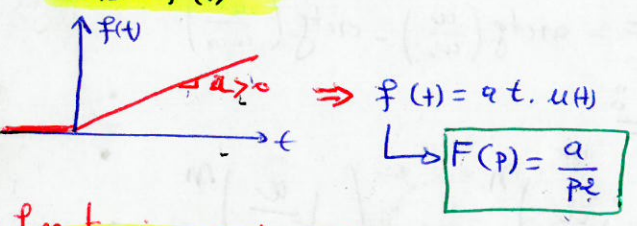 f(t)
a>0 ⇒ f(t) = a t. u(t)
t
F(p) = a/p²